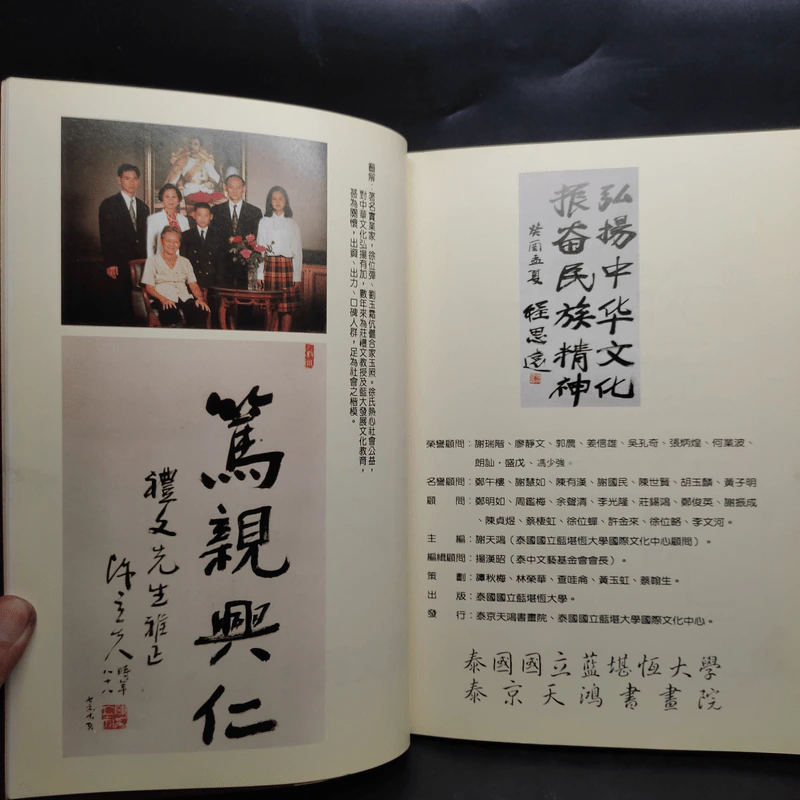 圖解：著名實業家，徐位彈、劉玉霜伉儷合家玉照。徐氏熱心社會公益，
對中華文化弘揚有加，數年來為莊禮文教授及藍大發展文化教育，
甚為關懷，出資、出力、口碑人群，足為社會之楷模。
篤親興仁
禮文先生雅正
陳立夫
時年八十八
弘揚中华文化
振奋民族精神
癸酉孟夏 程思遠
榮譽顧問：謝瑞階、廖靜文、郭農、姜信雄、吳孔奇、張炳煌、何業波、
朗訕．盛戊、馮少強。
名譽顧問：鄭午樓、謝慧如、陳有漢、謝國民、陳世賢、胡玉麟、黃子明
顧問：鄭明如、周鑑梅、余聲清、李光隆、莊錫鴻、鄭俊英、謝振成
、陳貞煜、蔡棲虹、徐位蟬、許金來、徐位略、李文河。
主編：謝天鴻（泰國國立藍堪恆大學國際文化中心顧問）。
編緝顧問：揚漢昭（泰中文藝基金會會長）。
策劃：譚秋梅、林榮華、查哇侖、黃玉虹、蔡翰生。
出版：泰國國立藍堪恆大學。
發行：泰京天鴻書畫院、泰國國立藍堪恆大學國際文化中心。
泰國國立藍堪恆大學
泰京天鴻書畫院